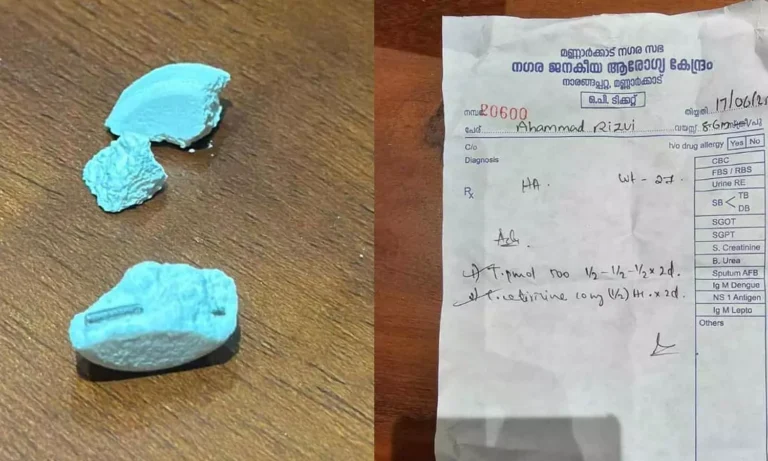 മണ്ണാർക്കാട് നഗര സഭ
നഗര ജനകീയ ആരോഗ്യ കേന്ദ്രം
നാരങ്ങപ്പറ്റ, മണ്ണാർക്കാട്
ഒ.പി. ടിക്കറ്റ്
നമ്പർ 20600 തിയ്യതി 17/06/25
പേര് Ahammad Rizvi വയസ്സ് 8
C/o h/o drug allergy Yes No
Diagnosis
Rx HA Wt - 27.
1) T. pmol 500 ½-½-½ x 2d.
2) T. cetirizine 10mg (½) HS x 2d.
CBC
FBS / RBS
Urine RE
SB < TB
DB
SGOT
SGPT
S. Creatinine
B. Urea
Sputum AFB
Ig M Dengue
NS 1 Antigen
Ig M Lepto
Others